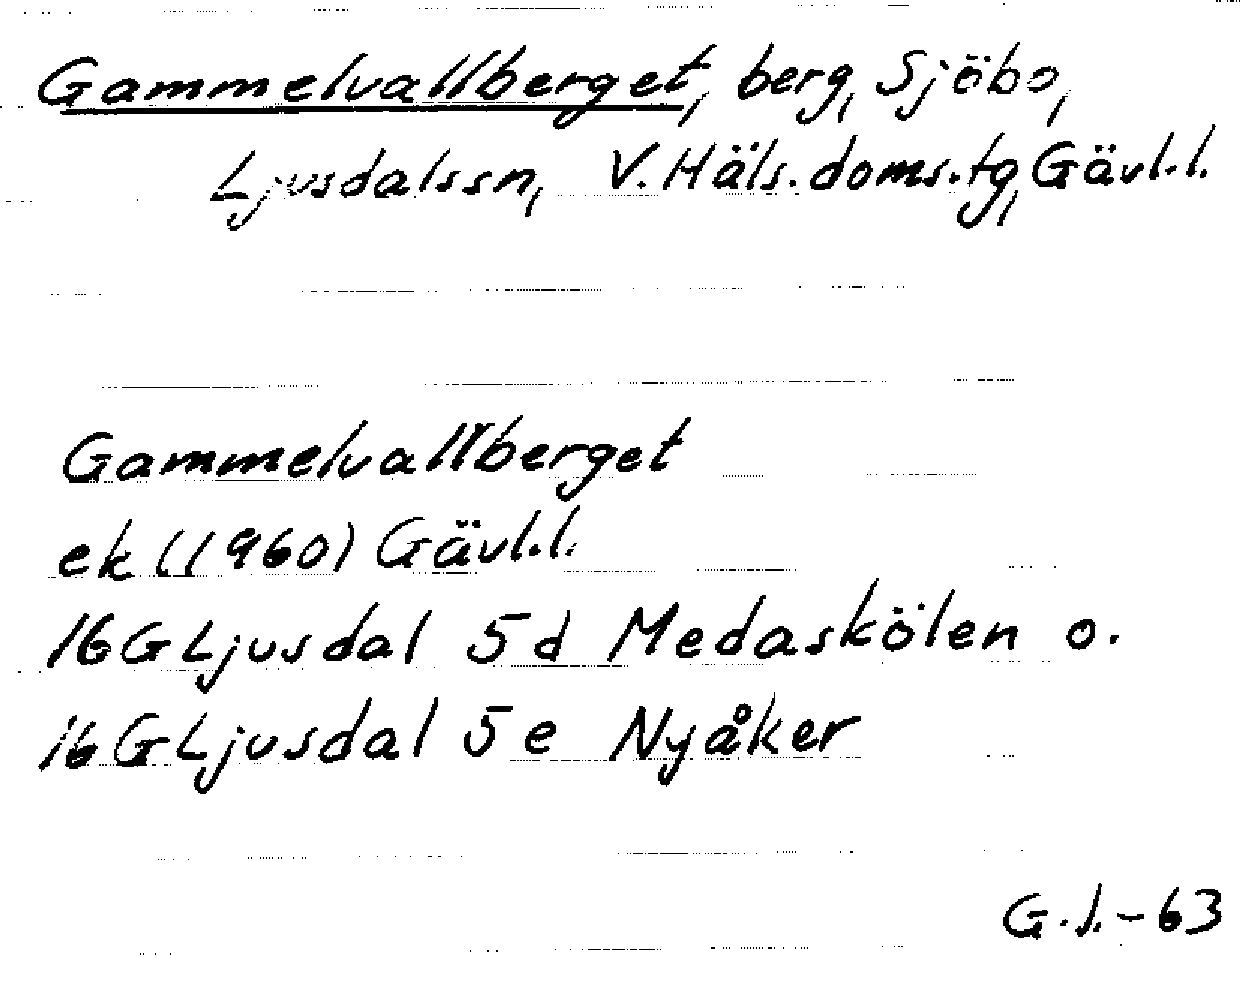 Gammelvallberget, berg, Sjöbo,
Ljusdalssn, V. Häls. doms.tg, Gävl.l.
Gammelvallberget
ek (1960) Gävl.l.
16G Ljusdal 5d Medaskölen o.
16G Ljusdal 5e Nyåker
G.l.-63